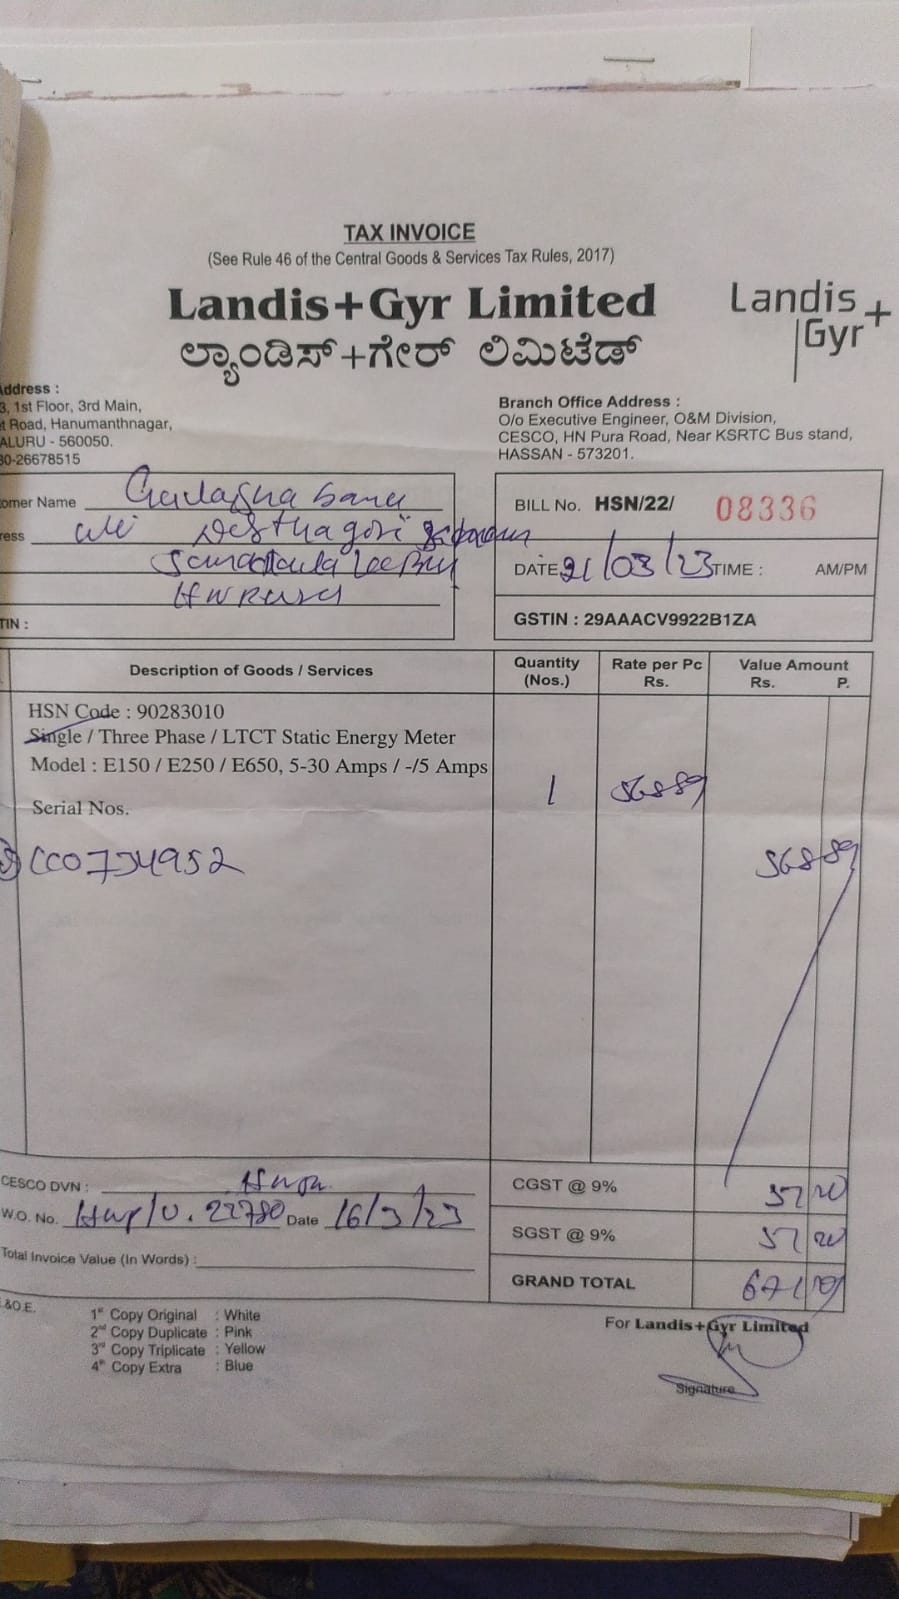 TAX INVOICE
(See Rule 46 of the Central Goods & Services Tax Rules, 2017)
Landis+Gyr Limited
ಲ್ಯಾಂಡಿಸ್+ಗೇರ್ ಲಿಮಿಟೆಡ್
Landis
Gyr+
ddress :
3, 1st Floor, 3rd Main,
t Road, Hanumanthnagar,
ALURU - 560050.
80-26678515
Branch Office Address :
O/o Executive Engineer, O&M Division,
CESCO, HN Pura Road, Near KSRTC Bus stand,
HASSAN - 573201.
omer Name
ress
TIN :
BILL No. HSN/22/ 08336
DATE 21/03/23 TIME : AM/PM
GSTIN : 29AAACV9922B1ZA
Description of Goods / Services Quantity (Nos.) Rate per Pc Rs. Value Amount Rs. P.
HSN Code : 90283010
Single / Three Phase / LTCT Static Energy Meter
Model : E150 / E250 / E650, 5-30 Amps / -/5 Amps
1 568 89
Serial Nos.
CC0734952 568 89
CESCO DVN :
W.O. No. 22780 Date 16/3/23
Total Invoice Value (In Words) :
CGST @ 9% 
SGST @ 9% 
GRAND TOTAL 671
&O.E.
1st Copy Original : White
2nd Copy Duplicate : Pink
3rd Copy Triplicate : Yellow
4th Copy Extra : Blue
For Landis+Gyr Limited
Signature